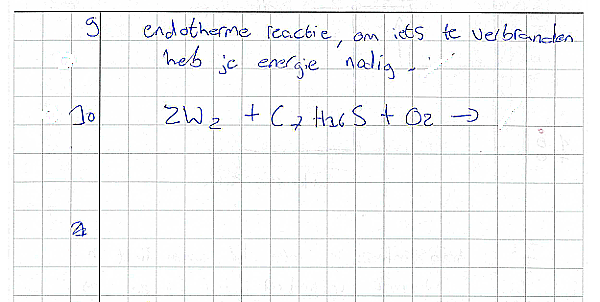 9 endotherme reactie, om iets te verbranden
heb je energie nodig.
10 ZW₂ + C₇H₁₆S + O₂ →